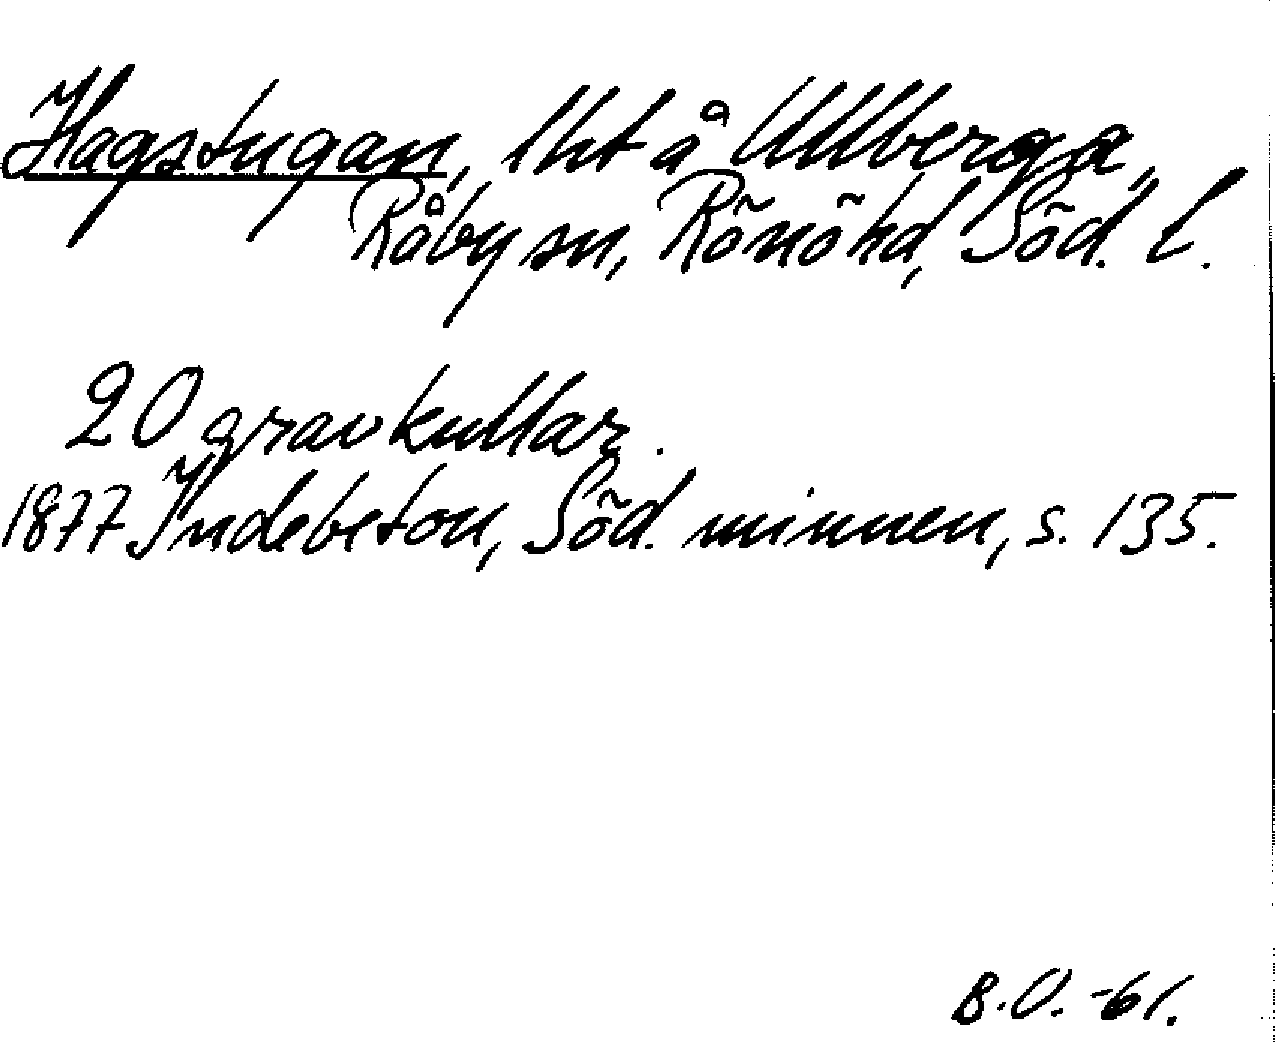 Hagstugan, lht å Ullberga,
Råby sn, Rönö hd, Söd. l.
20 gravkullar.
1877 Indebetou, Söd. minnen, s. 135.
B.O. -61.